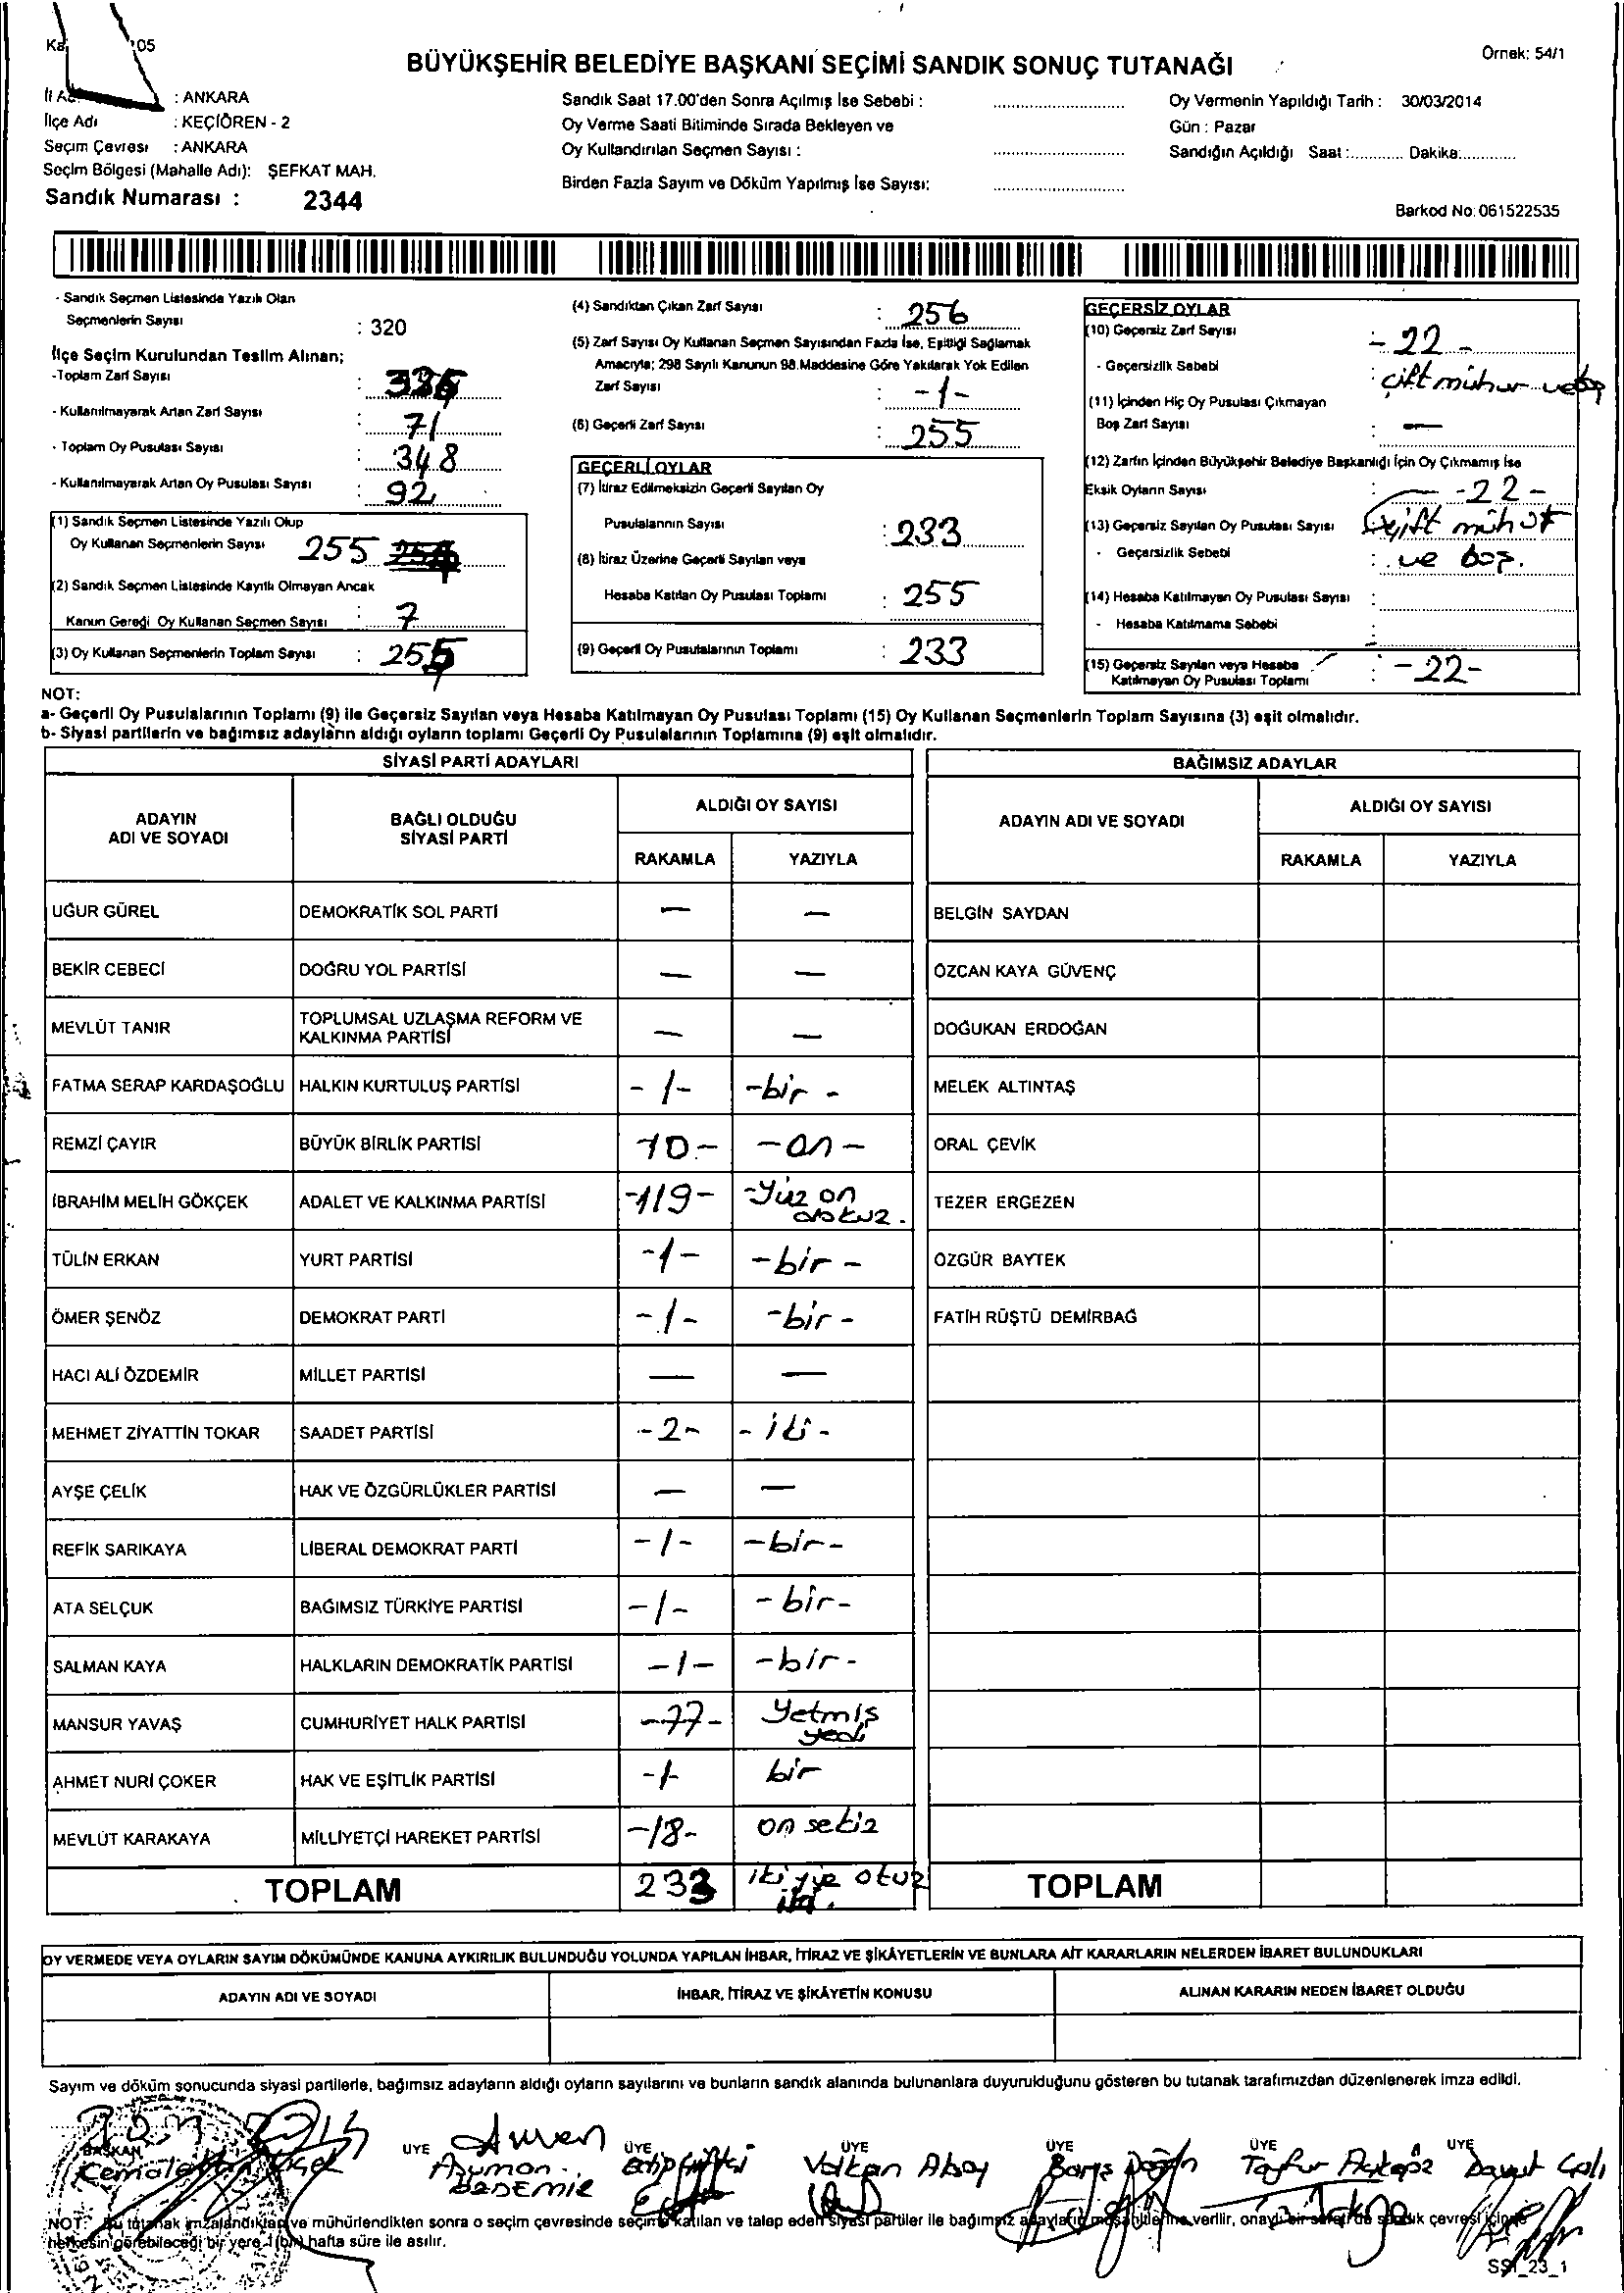 BÜYÜKŞEHİR BELEDİYE BAŞKANI SEÇİMİ SANDIK SONUÇ TUTANAĞI
Örnek: 54/1
: ANKARA
İlçe Adı : KEÇİÖREN - 2
Seçim Çevresi : ANKARA
Seçim Bölgesi (Mahalle Adı): ŞEFKAT MAH.
Sandık Numarası : 2344
Sandık Saat 17.00'den Sonra Açılmış İse Sebebi :
Oy Verme Saati Bitiminde Sırada Bekleyen ve
Oy Kullandırılan Seçmen Sayısı :
Birden Fazla Sayım ve Döküm Yapılmış İse Sayısı:
Oy Vermenin Yapıldığı Tarih : 30/03/2014
Gün : Pazar
Sandığın Açıldığı Saat :............ Dakika:............
Barkod No: 061522535
- Sandık Seçmen Listesinde Yazılı Olan
Seçmenlerin Sayısı : 320
İlçe Seçim Kurulundan Teslim Alınan;
-Toplam Zarf Sayısı :
- Kullanılmayarak Artan Zarf Sayısı : 71
- Toplam Oy Pusulası Sayısı : 348
- Kullanılmayarak Artan Oy Pusulası Sayısı : 92
(1) Sandık Seçmen Listesinde Yazılı Olup
Oy Kullanan Seçmenlerin Sayısı 255
(2) Sandık Seçmen Listesinde Kayıtlı Olmayan Ancak
Kanun Gereği Oy Kullanan Seçmen Sayısı :
(3) Oy Kullanan Seçmenlerin Toplam Sayısı : 255
(4) Sandıktan Çıkan Zarf Sayısı : 256
(5) Zarf Sayısı Oy Kullanan Seçmen Sayısından Fazla İse, Eşitliği Sağlamak
Amacıyla; 298 Sayılı Kanunun 98.Maddesine Göre Yakılarak Yok Edilen
Zarf Sayısı : -1-
(6) Geçerli Zarf Sayısı : 255
GEÇERLİ OYLAR
(7) İtiraz Edilmeksizin Geçerli Sayılan Oy
Pusulalarının Sayısı : 233
(8) İtiraz Üzerine Geçerli Sayılan veya
Hesaba Katılan Oy Pusulası Toplamı : 255
(9) Geçerli Oy Pusulalarının Toplamı : 233
GEÇERSİZ OYLAR
(10) Geçersiz Zarf Sayısı - 22 -
- Geçersizlik Sebebi : çift mühür ve boş
(11) İçinden Hiç Oy Pusulası Çıkmayan
Boş Zarf Sayısı : —
(12) Zarfın İçinden Büyükşehir Belediye Başkanlığı İçin Oy Çıkmamış İse
Eksik Oyların Sayısı : - 22 -
(13) Geçersiz Sayılan Oy Pusulası Sayısı çift mühür
- Geçersizlik Sebebi : ve boş.
(14) Hesaba Katılmayan Oy Pusulası Sayısı :
- Hesaba Katılmama Sebebi :
(15) Geçersiz Sayılan veya Hesaba
Katılmayan Oy Pusulası Toplamı : - 22 -
NOT:
a- Geçerli Oy Pusulalarının Toplamı (9) ile Geçersiz Sayılan veya Hesaba Katılmayan Oy Pusulası Toplamı (15) Oy Kullanan Seçmenlerin Toplam Sayısına (3) eşit olmalıdır.
b- Siyasi partilerin ve bağımsız adayların aldığı oyların toplamı Geçerli Oy Pusulalarının Toplamına (9) eşit olmalıdır.
SİYASİ PARTİ ADAYLARI
ADAYIN ADI VE SOYADI BAĞLI OLDUĞU SİYASİ PARTİ ALDIĞI OY SAYISI
RAKAMLA YAZIYLA
UĞUR GÜREL DEMOKRATİK SOL PARTİ — —
BEKİR CEBECİ DOĞRU YOL PARTİSİ — —
MEVLÜT TANIR TOPLUMSAL UZLAŞMA REFORM VE KALKINMA PARTİSİ — —
FATMA SERAP KARDAŞOĞLU HALKIN KURTULUŞ PARTİSİ - 1 - - bir -
REMZİ ÇAYIR BÜYÜK BİRLİK PARTİSİ 10 - - on -
İBRAHİM MELİH GÖKÇEK ADALET VE KALKINMA PARTİSİ - 119 - - Yüz on dokuz .
TÜLİN ERKAN YURT PARTİSİ - 1 - - bir -
ÖMER ŞENÖZ DEMOKRAT PARTİ - 1 - - bir -
HACI ALİ ÖZDEMİR MİLLET PARTİSİ — —
MEHMET ZİYATTİN TOKAR SAADET PARTİSİ - 2 - - iki -
AYŞE ÇELİK HAK VE ÖZGÜRLÜKLER PARTİSİ — —
REFİK SARIKAYA LİBERAL DEMOKRAT PARTİ - 1 - - bir -
ATA SELÇUK BAĞIMSIZ TÜRKİYE PARTİSİ - 1 - - bir -
SALMAN KAYA HALKLARIN DEMOKRATİK PARTİSİ - 1 - - bir -
MANSUR YAVAŞ CUMHURİYET HALK PARTİSİ - 77 - Yetmiş yedi
AHMET NURİ ÇOKER HAK VE EŞİTLİK PARTİSİ - 1 - bir
MEVLÜT KARAKAYA MİLLİYETÇİ HAREKET PARTİSİ - 18 - on sekiz
TOPLAM 233 iki yüz otuz
BAĞIMSIZ ADAYLAR
ADAYIN ADI VE SOYADI ALDIĞI OY SAYISI
RAKAMLA YAZIYLA
BELGİN SAYDAN
ÖZCAN KAYA GÜVENÇ
DOĞUKAN ERDOĞAN
MELEK ALTINTAŞ
ORAL ÇEVİK
TEZER ERGEZEN
ÖZGÜR BAYTEK
FATİH RÜŞTÜ DEMİRBAĞ
TOPLAM
OY VERMEDE VEYA OYLARIN SAYIM DÖKÜMÜNDE KANUNA AYKIRILIK BULUNDUĞU YOLUNDA YAPILAN İHBAR, İTİRAZ VE ŞİKÂYETLERİN VE BUNLARA AİT KARARLARIN NELERDEN İBARET BULUNDUKLARI
ADAYIN ADI VE SOYADI İHBAR, İTİRAZ VE ŞİKÂYETİN KONUSU ALINAN KARARIN NEDEN İBARET OLDUĞU
Sayım ve döküm sonucunda siyasi partilerle, bağımsız adayların aldığı oyların sayılarını ve bunların sandık alanında bulunanlara duyurulduğunu gösteren bu tutanak tarafımızdan düzenlenerek imza edildi.
BAŞKAN ÜYE ÜYE ÜYE ÜYE ÜYE ÜYE
Volkan Barış Tayfur Davut
NOT: Bu tutanak imzalandıktan ve mühürlendikten sonra o seçim çevresinde seçime katılan ve talep eden siyasi partiler ile bağımsız adayların müşahitlerine verilir, onaylı bir sureti de sandık çevresi içinde
herkesin görebileceği bir yere 1(bir) hafta süre ile asılır.
SS1_23_1